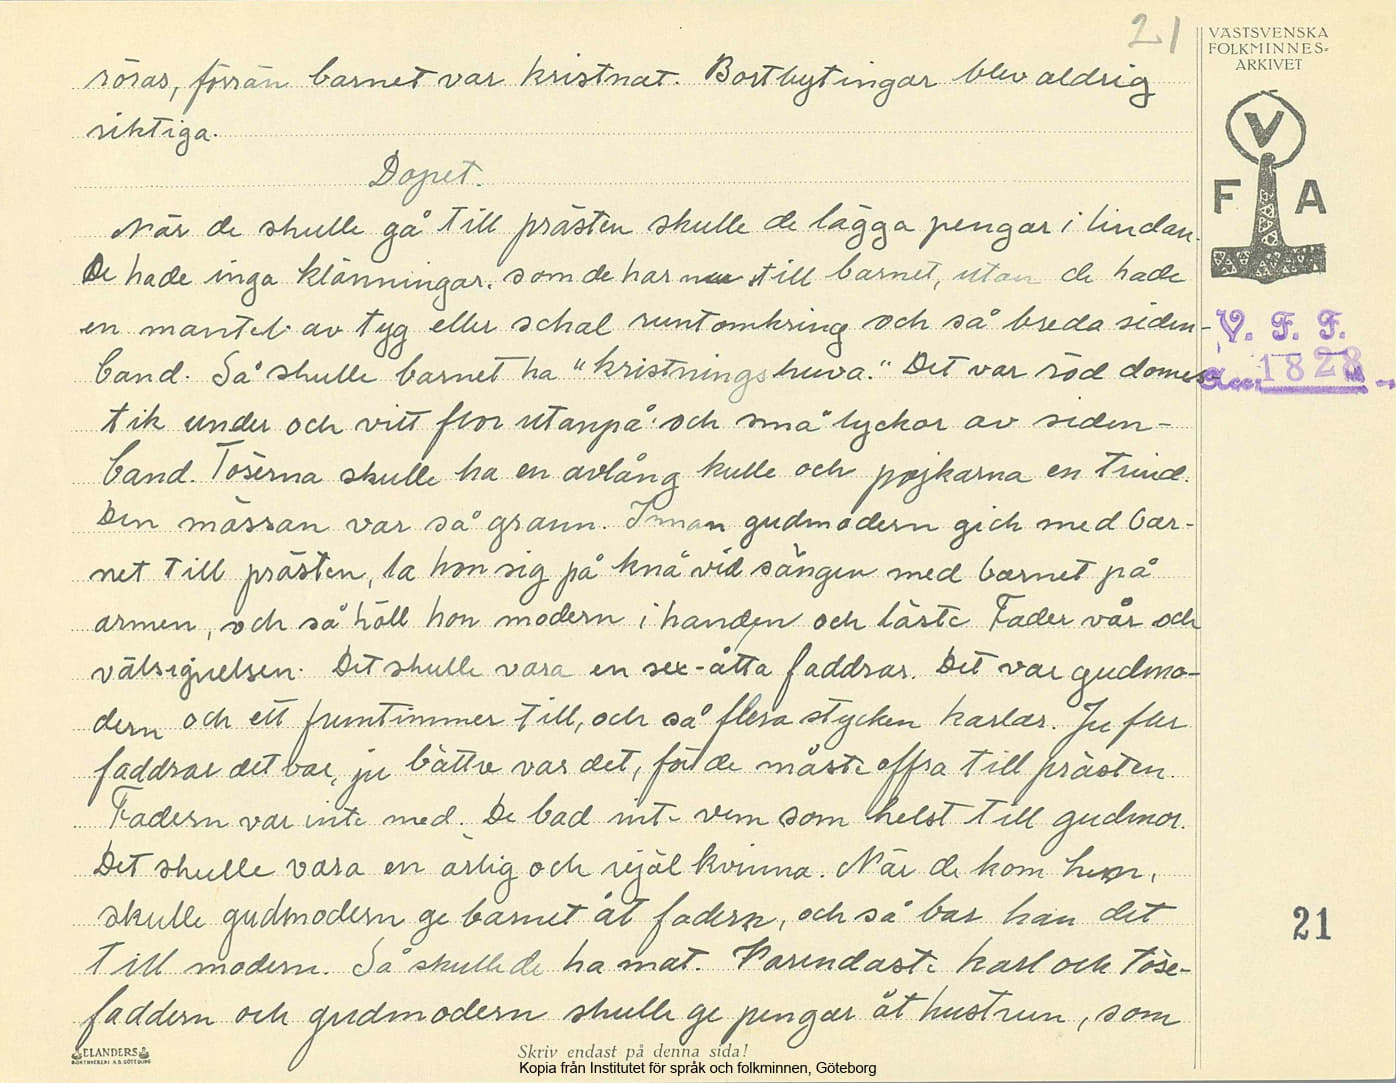 21
VÄSTSVENSKA
FOLKMINNES-
ARKIVET
V
F A
V. F. F.
Acc. 1828
röras, förrän barnet var kristnat. Bortbytingar blev aldrig
riktiga.
Dopet.
När de skulle gå till prästen skulle de lägga pengar i lindan.
De hade inga klänningar, som de har nu till barnet, utan de hade
en mantel av tyg eller schal runtomkring och så breda siden-
band. Så skulle barnet ha "kristningshuva." Det var röd domes-
tik under och vitt flor utanpå och små lyckor av siden-
band. Töserna skulle ha en avlång kulle och pojkarna en trind.
Den mössan var så grann. Innan gudmodern gick med bar-
net till prästen, la hon sig på knä vid sängen med barnet på
armen, och så höll hon modern i handen och läste Fader vår och
välsignelsen. Det skulle vara en sex-åtta faddrar. Det var gudmo-
dern och ett fruntimmer till, och så flera stycken karlar. Ju fler
faddrar det var, ju bättre var det, för de måste offra till prästen.
Fadern var inte med. De bad inte vem som helst till gudmor.
Det skulle vara en ärlig och rejäl kvinna. När de kom hem,
skulle gudmodern ge barnet åt fadern, och så bar han det
till modern. Så skulle de ha mat. Varendaste karl och töse-
faddern och gudmodern skulle ge pengar åt hustrun, som
21
ELANDERS
BOKTRYCKERI A.B. GÖTEBORG
Skriv endast på denna sida!
Kopia från Institutet för språk och folkminnen, Göteborg